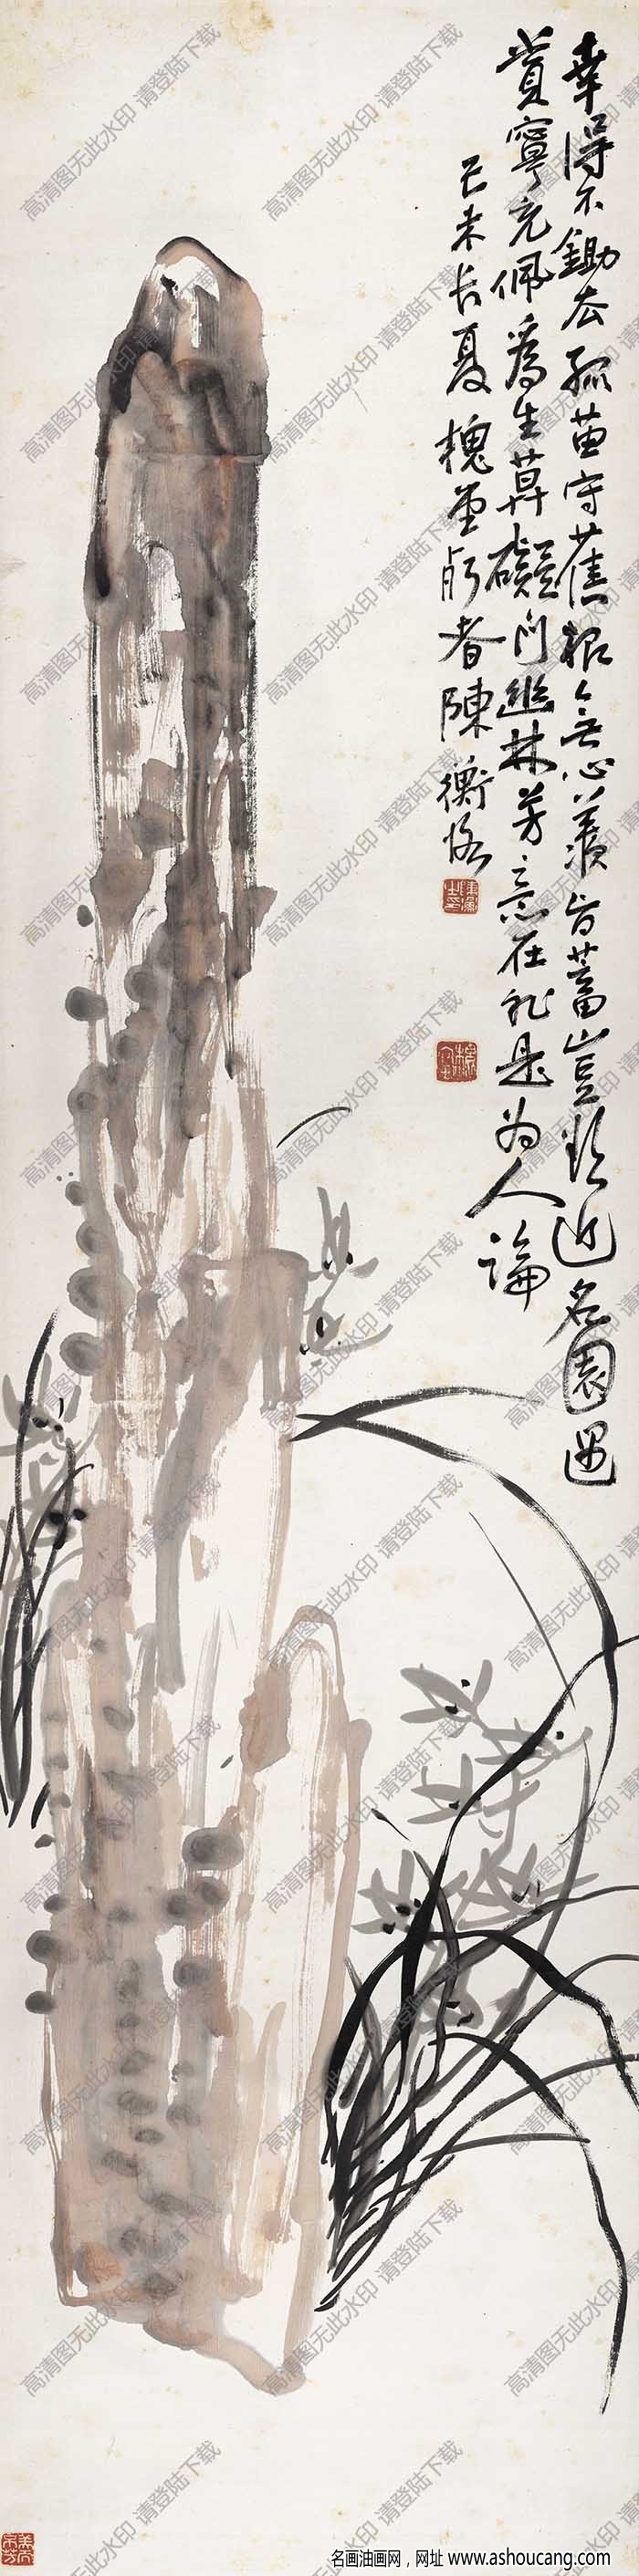 幸得不鋤去孤苗守舊根無心羨旨蓄豈欲近名園遇
賞寧充佩爲生莫礙門幽林芳意在非是為人論
己未長夏槐堂朽者陳衡恪
高清图无此水印 请登陆下载
名画油画网，网址 www.ashoucang.com